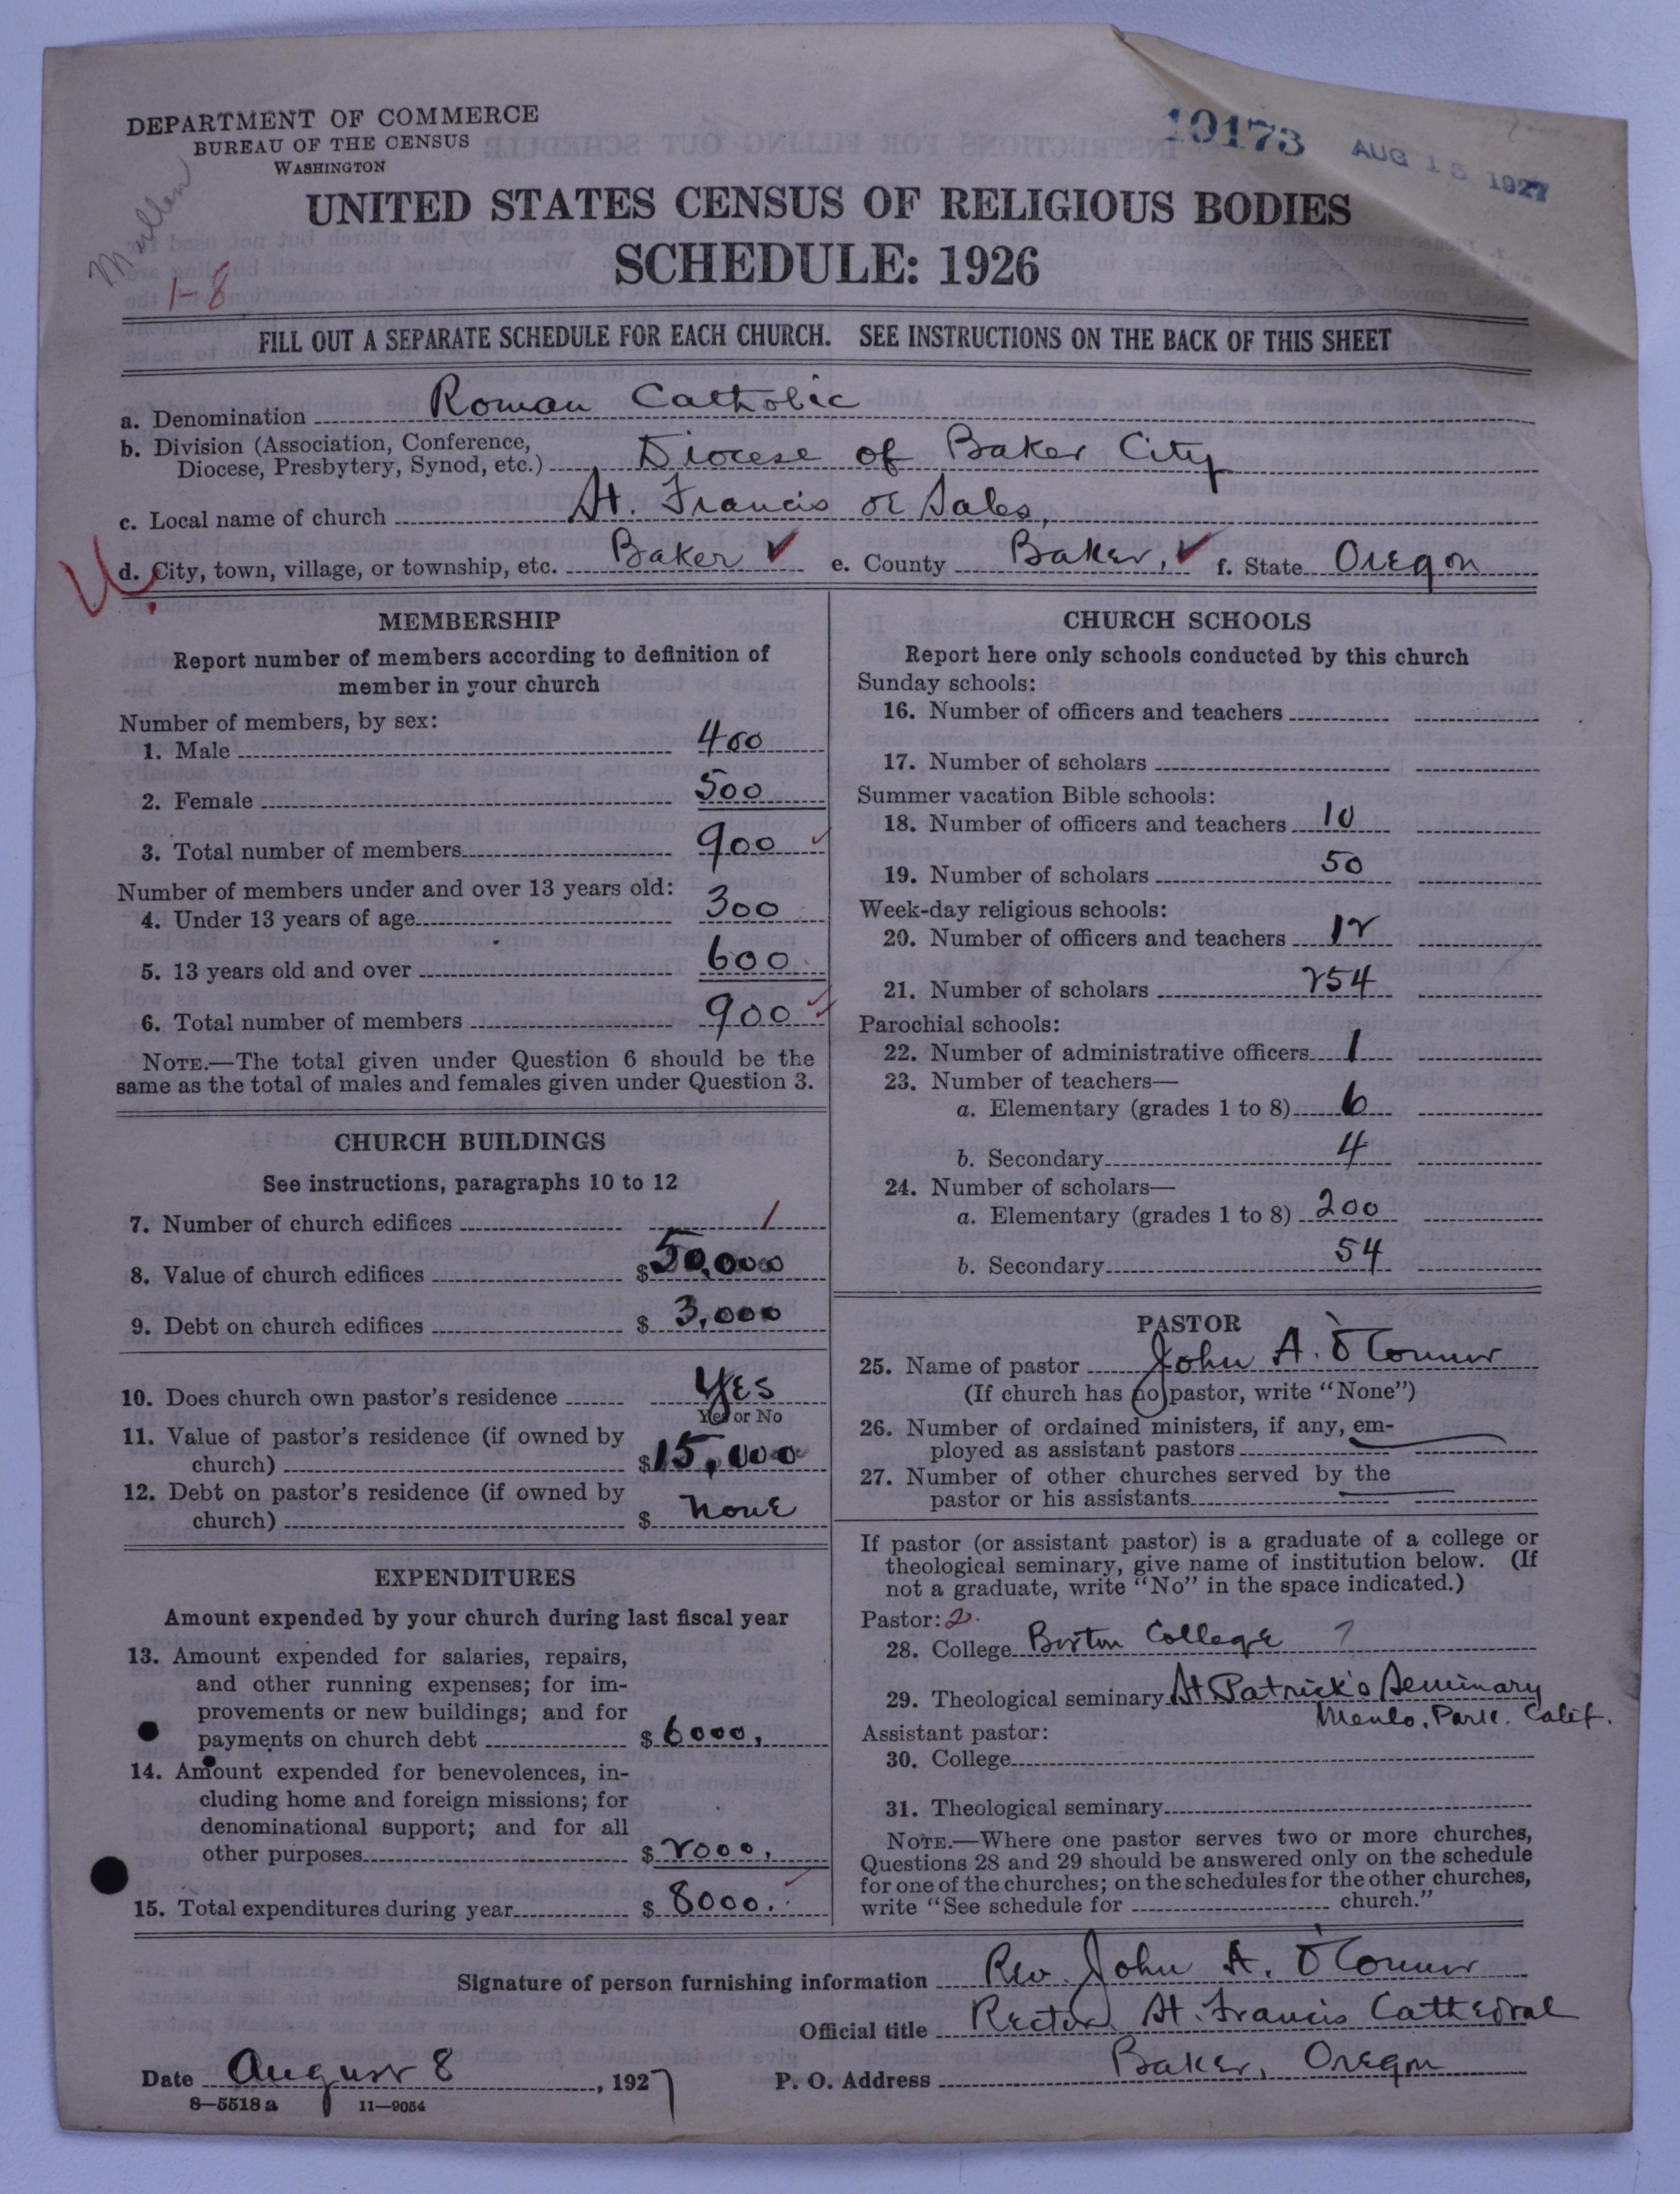 10173
AUG 15 1927
DEPARTMENT OF COMMERCE
BUREAU OF THE CENSUS
WASHINGTON
Mullen
1-8
UNITED STATES CENSUS OF RELIGIOUS BODIES
SCHEDULE: 1926
FILL OUT A SEPARATE SCHEDULE FOR EACH CHURCH. SEE INSTRUCTIONS ON THE BACK OF THIS SHEET
a. Denomination Roman Catholic
b. Division (Association, Conference,
Diocese, Presbytery, Synod, etc.) Diocese of Baker City
c. Local name of church St. Francis de Sales,
d. City, town, village, or township, etc. Baker ✓ e. County Baker, ✓ f. State Oregon
MEMBERSHIP
Report number of members according to definition of
member in your church
Number of members, by sex:
1. Male 400
2. Female 500
3. Total number of members 900 ✓
Number of members under and over 13 years old:
4. Under 13 years of age 300
5. 13 years old and over 600
6. Total number of members 900 ✓
NOTE.—The total given under Question 6 should be the
same as the total of males and females given under Question 3.
CHURCH BUILDINGS
See instructions, paragraphs 10 to 12
7. Number of church edifices 1
8. Value of church edifices $50,000
9. Debt on church edifices $ 3,000
10. Does church own pastor's residence Yes
Yes or No
11. Value of pastor's residence (if owned by
church) $15,000
12. Debt on pastor's residence (if owned by
church) $ none
EXPENDITURES
Amount expended by your church during last fiscal year
13. Amount expended for salaries, repairs,
and other running expenses; for im-
provements or new buildings; and for
payments on church debt $6000,
14. Amount expended for benevolences, in-
cluding home and foreign missions; for
denominational support; and for all
other purposes $2000,
15. Total expenditures during year $ 8000. ✓
CHURCH SCHOOLS
Report here only schools conducted by this church
Sunday schools:
16. Number of officers and teachers
17. Number of scholars
Summer vacation Bible schools:
18. Number of officers and teachers 10
19. Number of scholars 50
Week-day religious schools:
20. Number of officers and teachers 12
21. Number of scholars 254
Parochial schools:
22. Number of administrative officers 1
23. Number of teachers—
a. Elementary (grades 1 to 8) 6
b. Secondary 4
24. Number of scholars—
a. Elementary (grades 1 to 8) 200
b. Secondary 54
PASTOR
25. Name of pastor John A. O'Connor
(If church has no pastor, write "None")
26. Number of ordained ministers, if any, em-
ployed as assistant pastors
27. Number of other churches served by the
pastor or his assistants
If pastor (or assistant pastor) is a graduate of a college or
theological seminary, give name of institution below. (If
not a graduate, write "No" in the space indicated.)
Pastor: 2.
28. College Boston College ?
29. Theological seminary St Patrick's Seminary
Menlo, Park. Calif.
Assistant pastor:
30. College
31. Theological seminary
NOTE.—Where one pastor serves two or more churches,
Questions 28 and 29 should be answered only on the schedule
for one of the churches; on the schedules for the other churches,
write "See schedule for church."
Signature of person furnishing information Rev. John A. O'Connor
Official title Rector St. Francis Cathedral
Date August 8, 1927 P. O. Address Baker, Oregon
8—5518 a 11—9054